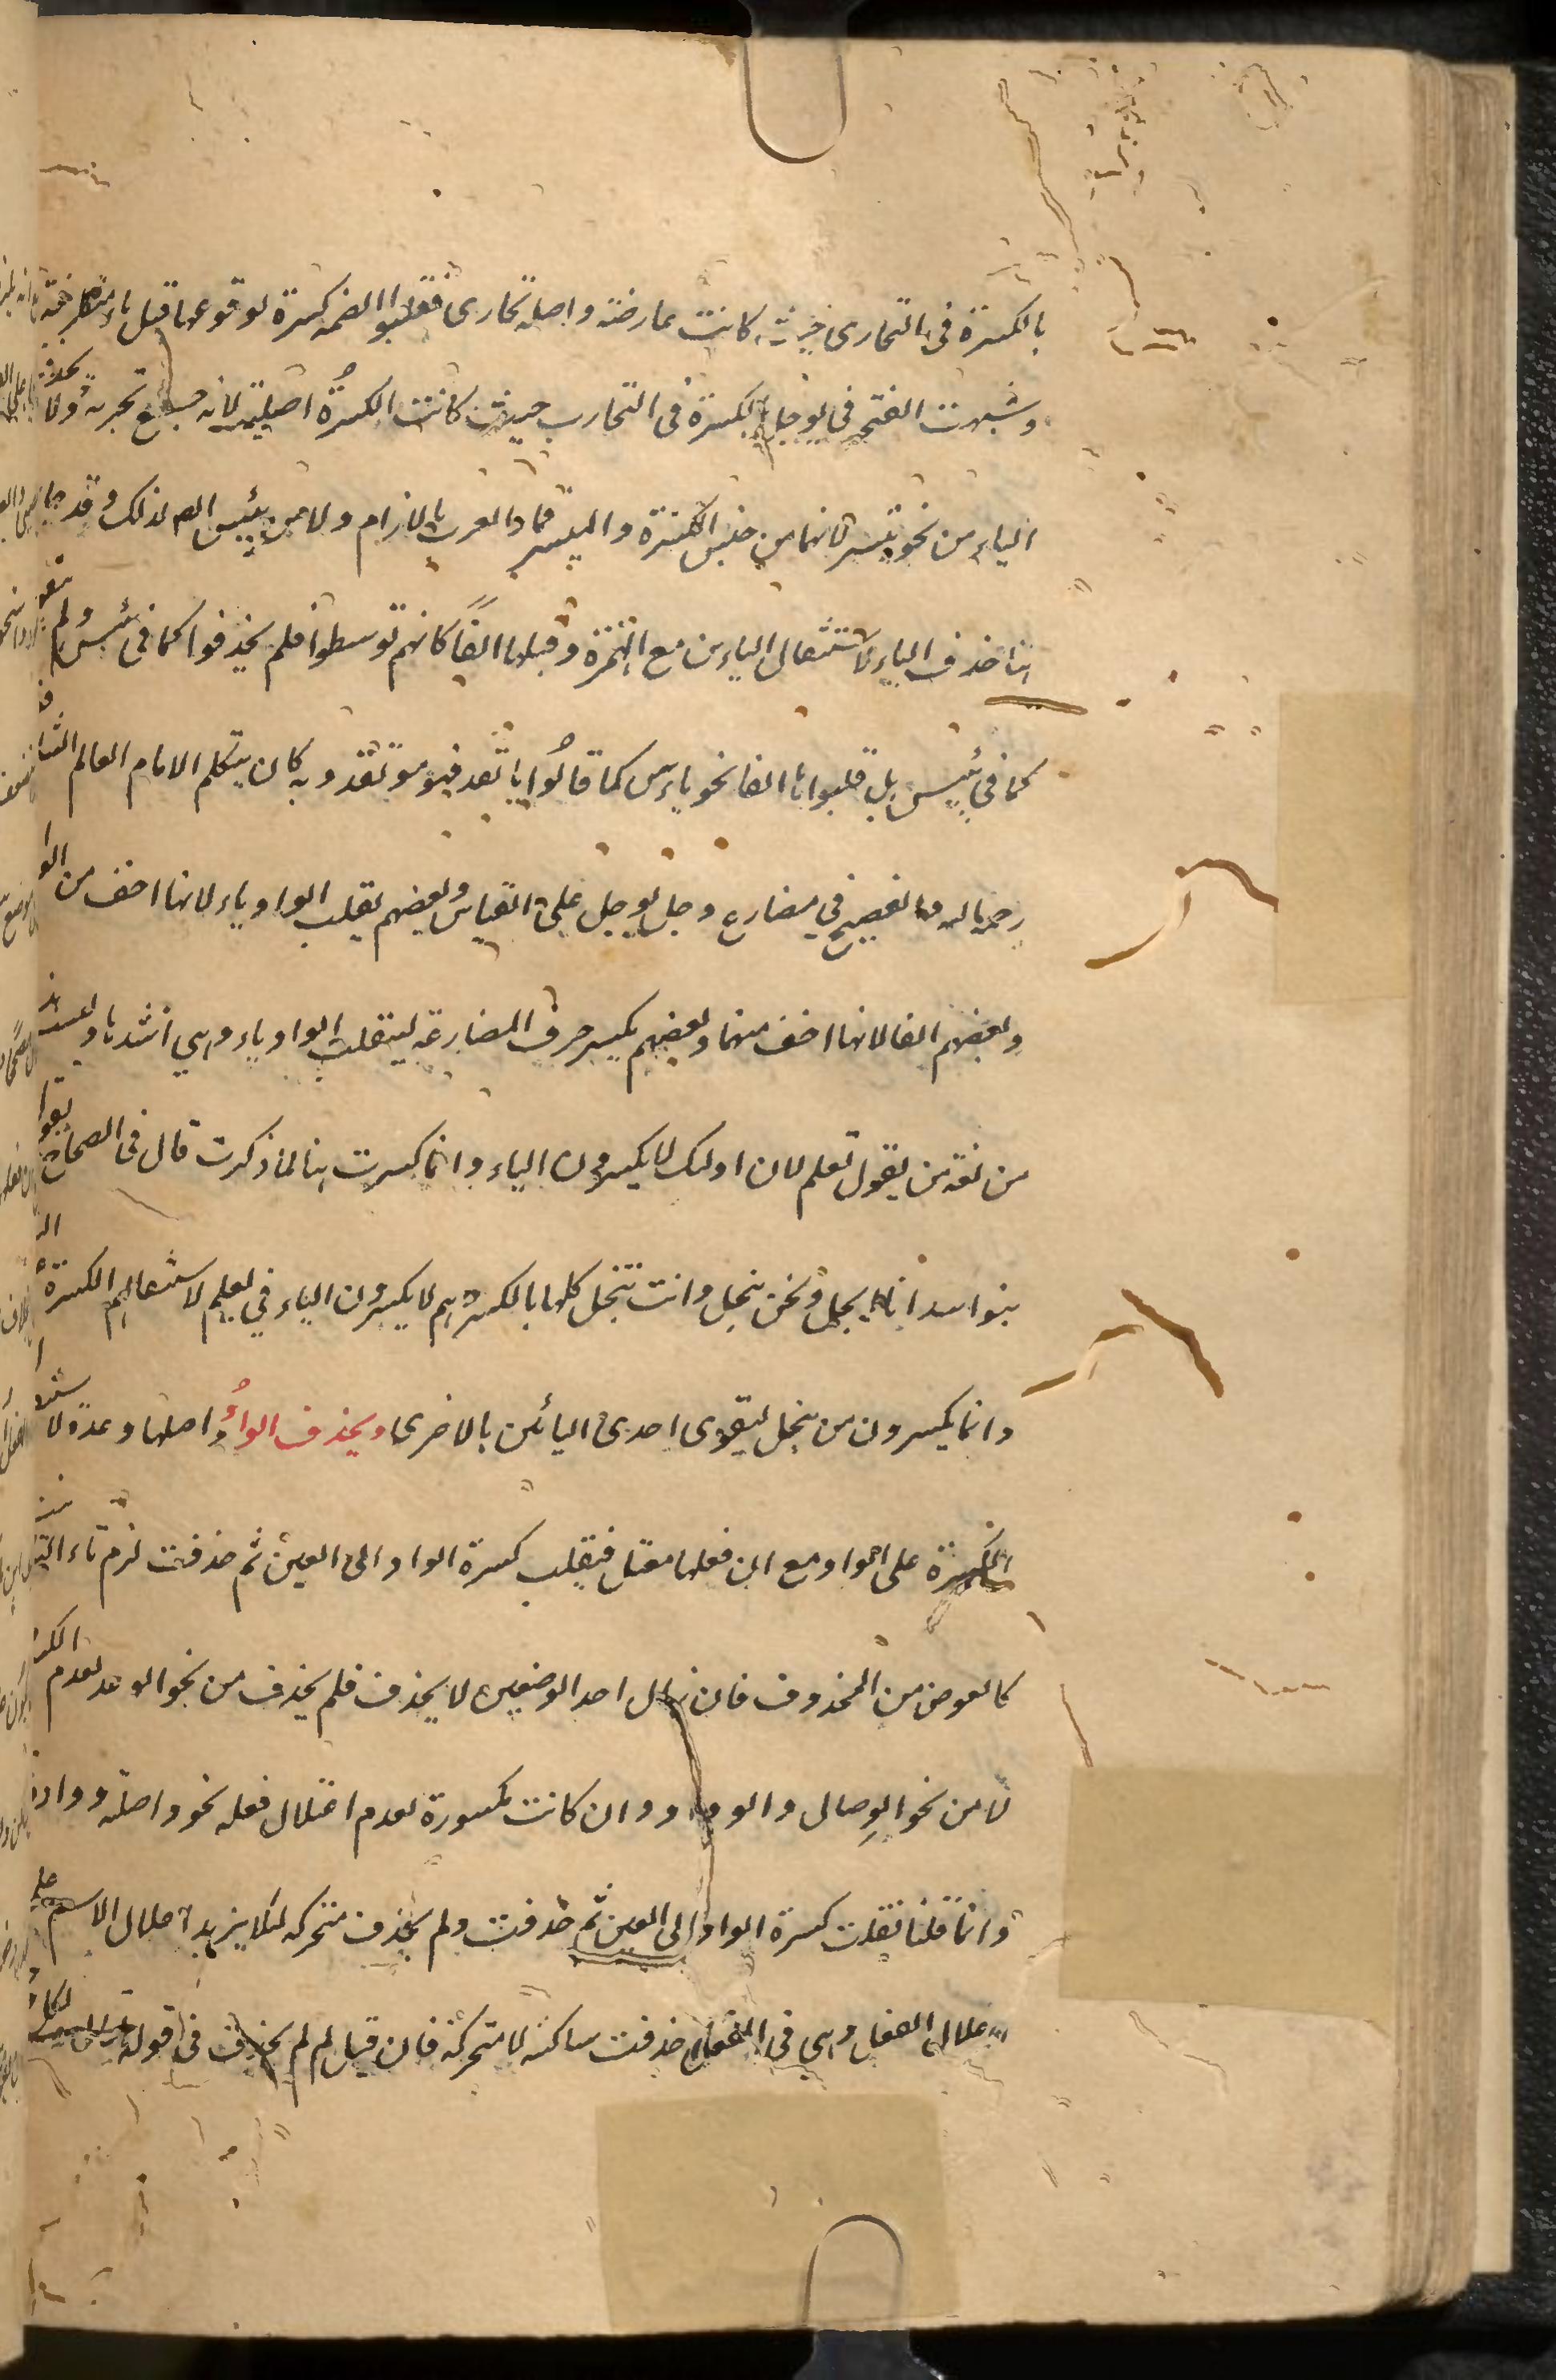 بالكسرة في التجاري حيث كانت عارضة واصله تجاري فقلبوا الضمة كسرة لوقوعها قبل ياء متطرفة
وشبهت الفتحة في يوجل بالكسرة في التجارب حيث كانت الكسرة اصلية لانه جمع تجربة ولا يحذف
الياء من نحو ييسر لانها من جنس الكسرة والميسر قمار العرب بالازلام ولا من ييئس لذلك وقد جاء
هنا حذف الياء لاستثقال الياءين مع الهمزة وقبلها الفا كانهم توسطوا فلم يحذفوا كما في يئس ولم
كما في ييئس بل قلبوها الفا نحو ياءس كما قالوا ياتعد فهو موتعد وبه كان يتكلم الامام العالم الشا
رحمه الله والفصيح في مضارع وجل يوجل على القياس وبعضهم يقلب الواو ياء لانها اخف من الوا
وبعضهم الفا لانها اخف منهما وبعضهم يكسر حرف المضارعة لينقلب الواو ياء وهي اشدها وليست
من لغة من يقول تعلم لان اولئك لا يكسرون الياء وانما كسرت هنا لما ذكرت قال في الصحاح
بنو اسد انا ايجل ونحن نيجل وانت تيجل كلها بالكسر وهم لا يكسرون الياء في يعلم لاستثقالهم الكسرة
وانما يكسرون من ييجل ليقوى احدى اليائين بالاخرى ويحذف الواو واصلها وعدة لا ستثقا
الكسرة على الواو مع ان فعلها معتل فيقلب كسرة الواو الى العين ثم حذفت لزم تاء التا
كالعوض من المحذوف فان زال احد الوصفين لا يحذف فلم يحذف من نحو الوعد لعدم الكسر
لا من نحو الوصال والوداد وان كانت مكسورة لعدم اعتلال فعله نحو واصلته وواد
وانما قلنا نقلت كسرة الواو الى العين ثم حذفت ولم يحذف متحركة لئلا يزيد اعلال الاسم على
اعلال الفعل وهي في الفعل حذفت ساكنة لا متحركة فان قيل لم لم يحذف في قوله